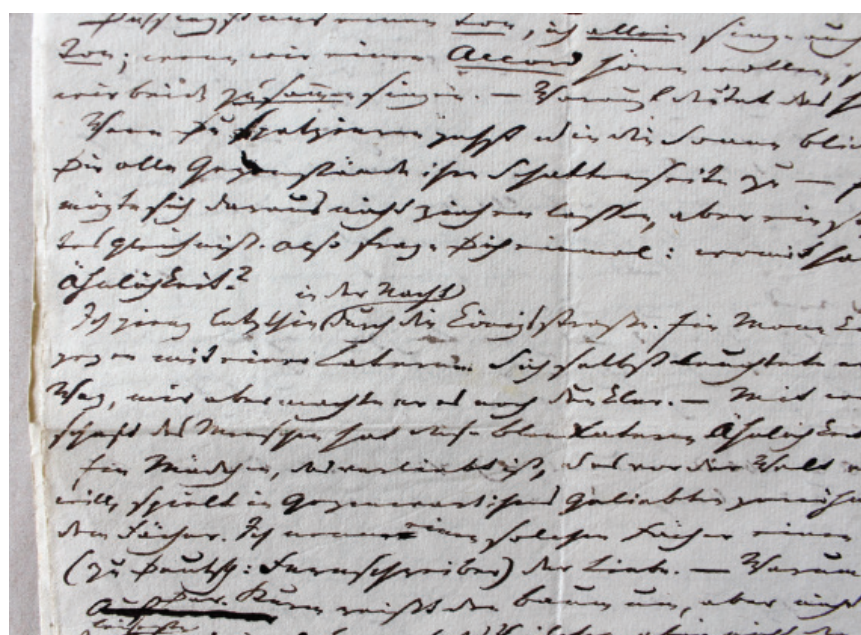 nur einen Ton, ich allein singe auch
Ton; wenn wir einen Accord hören wollen, s
wir beide zusammen singen. — Worauf deutet das h
Wenn Du spatzieren gehst und in die Sonne blic
Dir alle Gegenstände ihre Schattenseite zu —
mögte sich daraus nicht ziehen lassen, aber ein s
tes Gleichniß. Also frage Dich einmal: womit ha
Ähnlichkeit?
in der Nacht
Ich gieng letzthin durch die Königsstraße. Ein Mann k
gegen mit einer Laterne. Sich selbst leuchtete e
Weg, mir aber machte er es noch dunkler. — Mit we
schaft des Menschen hat diese Blendlaterne Ähnlichkei
Ein Mädchen, das verliebt ist, und es vor der Welt v
will, spielt in Gegenwart ihres Geliebten gewöhn
dem Fächer. Ich nenne einen solchen Fächer einen
(zu Deutsch: Fernschreiber) der Liebe. — Warum
Der Sturm reißt den Baum um, aber nicht
leiseste